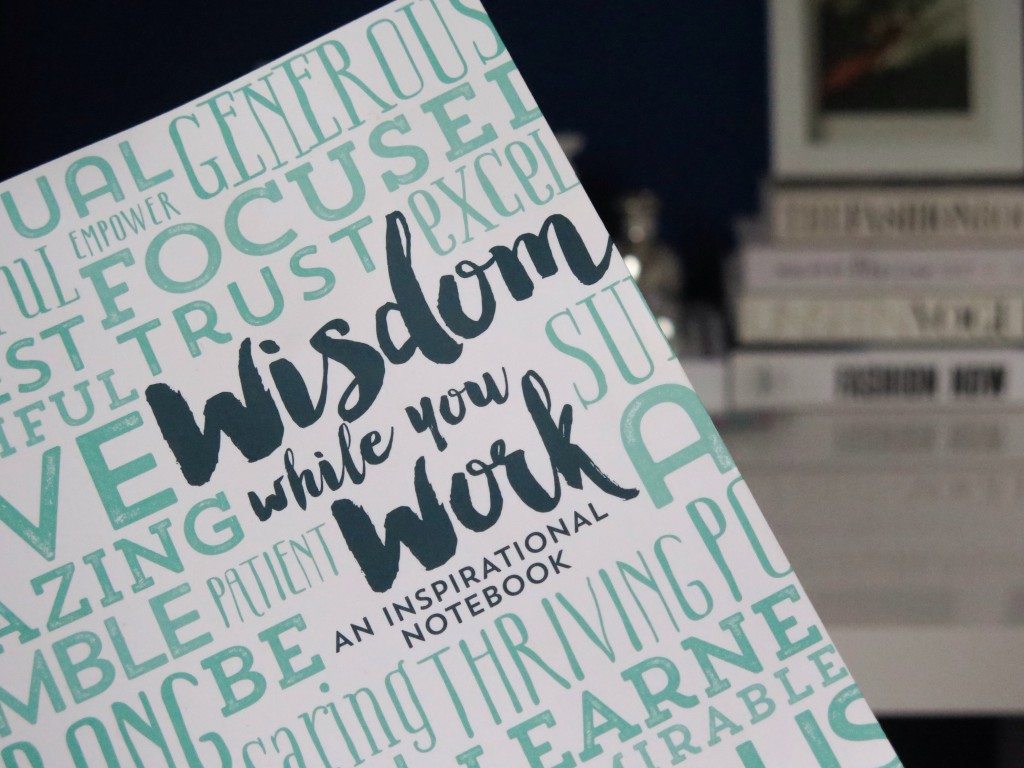 UAL GENEROUS
UL EMPOWER FOCUSED
EST TRUST EXCEL
IFUL
Wisdom
while you
Work
AN INSPIRATIONAL
NOTEBOOK
SU
VE A
AZING PATIENT
MBLE THRIVING PO
ONG BE caring LEARNE
MIRABLE
US
FASHION NOW